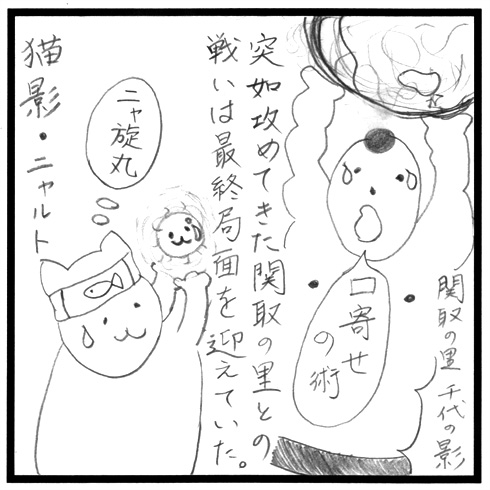 関取の里 千代の影
口寄せ
の術
突如攻めてきた関取の里との
戦いは最終局面を迎えていた。
ニャ旋丸
猫影・ニャルト